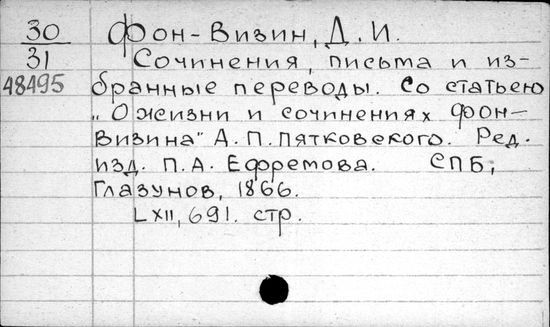 30 Фон-Визин, Д. И.
31 Сочинения, письма и из-
48495 бранные переводы. Со статьею
„О жизни и сочинениях Фон-
Визина" А. П. Пятковского. Ред.
изд. П. А. Ефремова. СПБ,
Глазунов, 1866.
LXII, 691. стр.